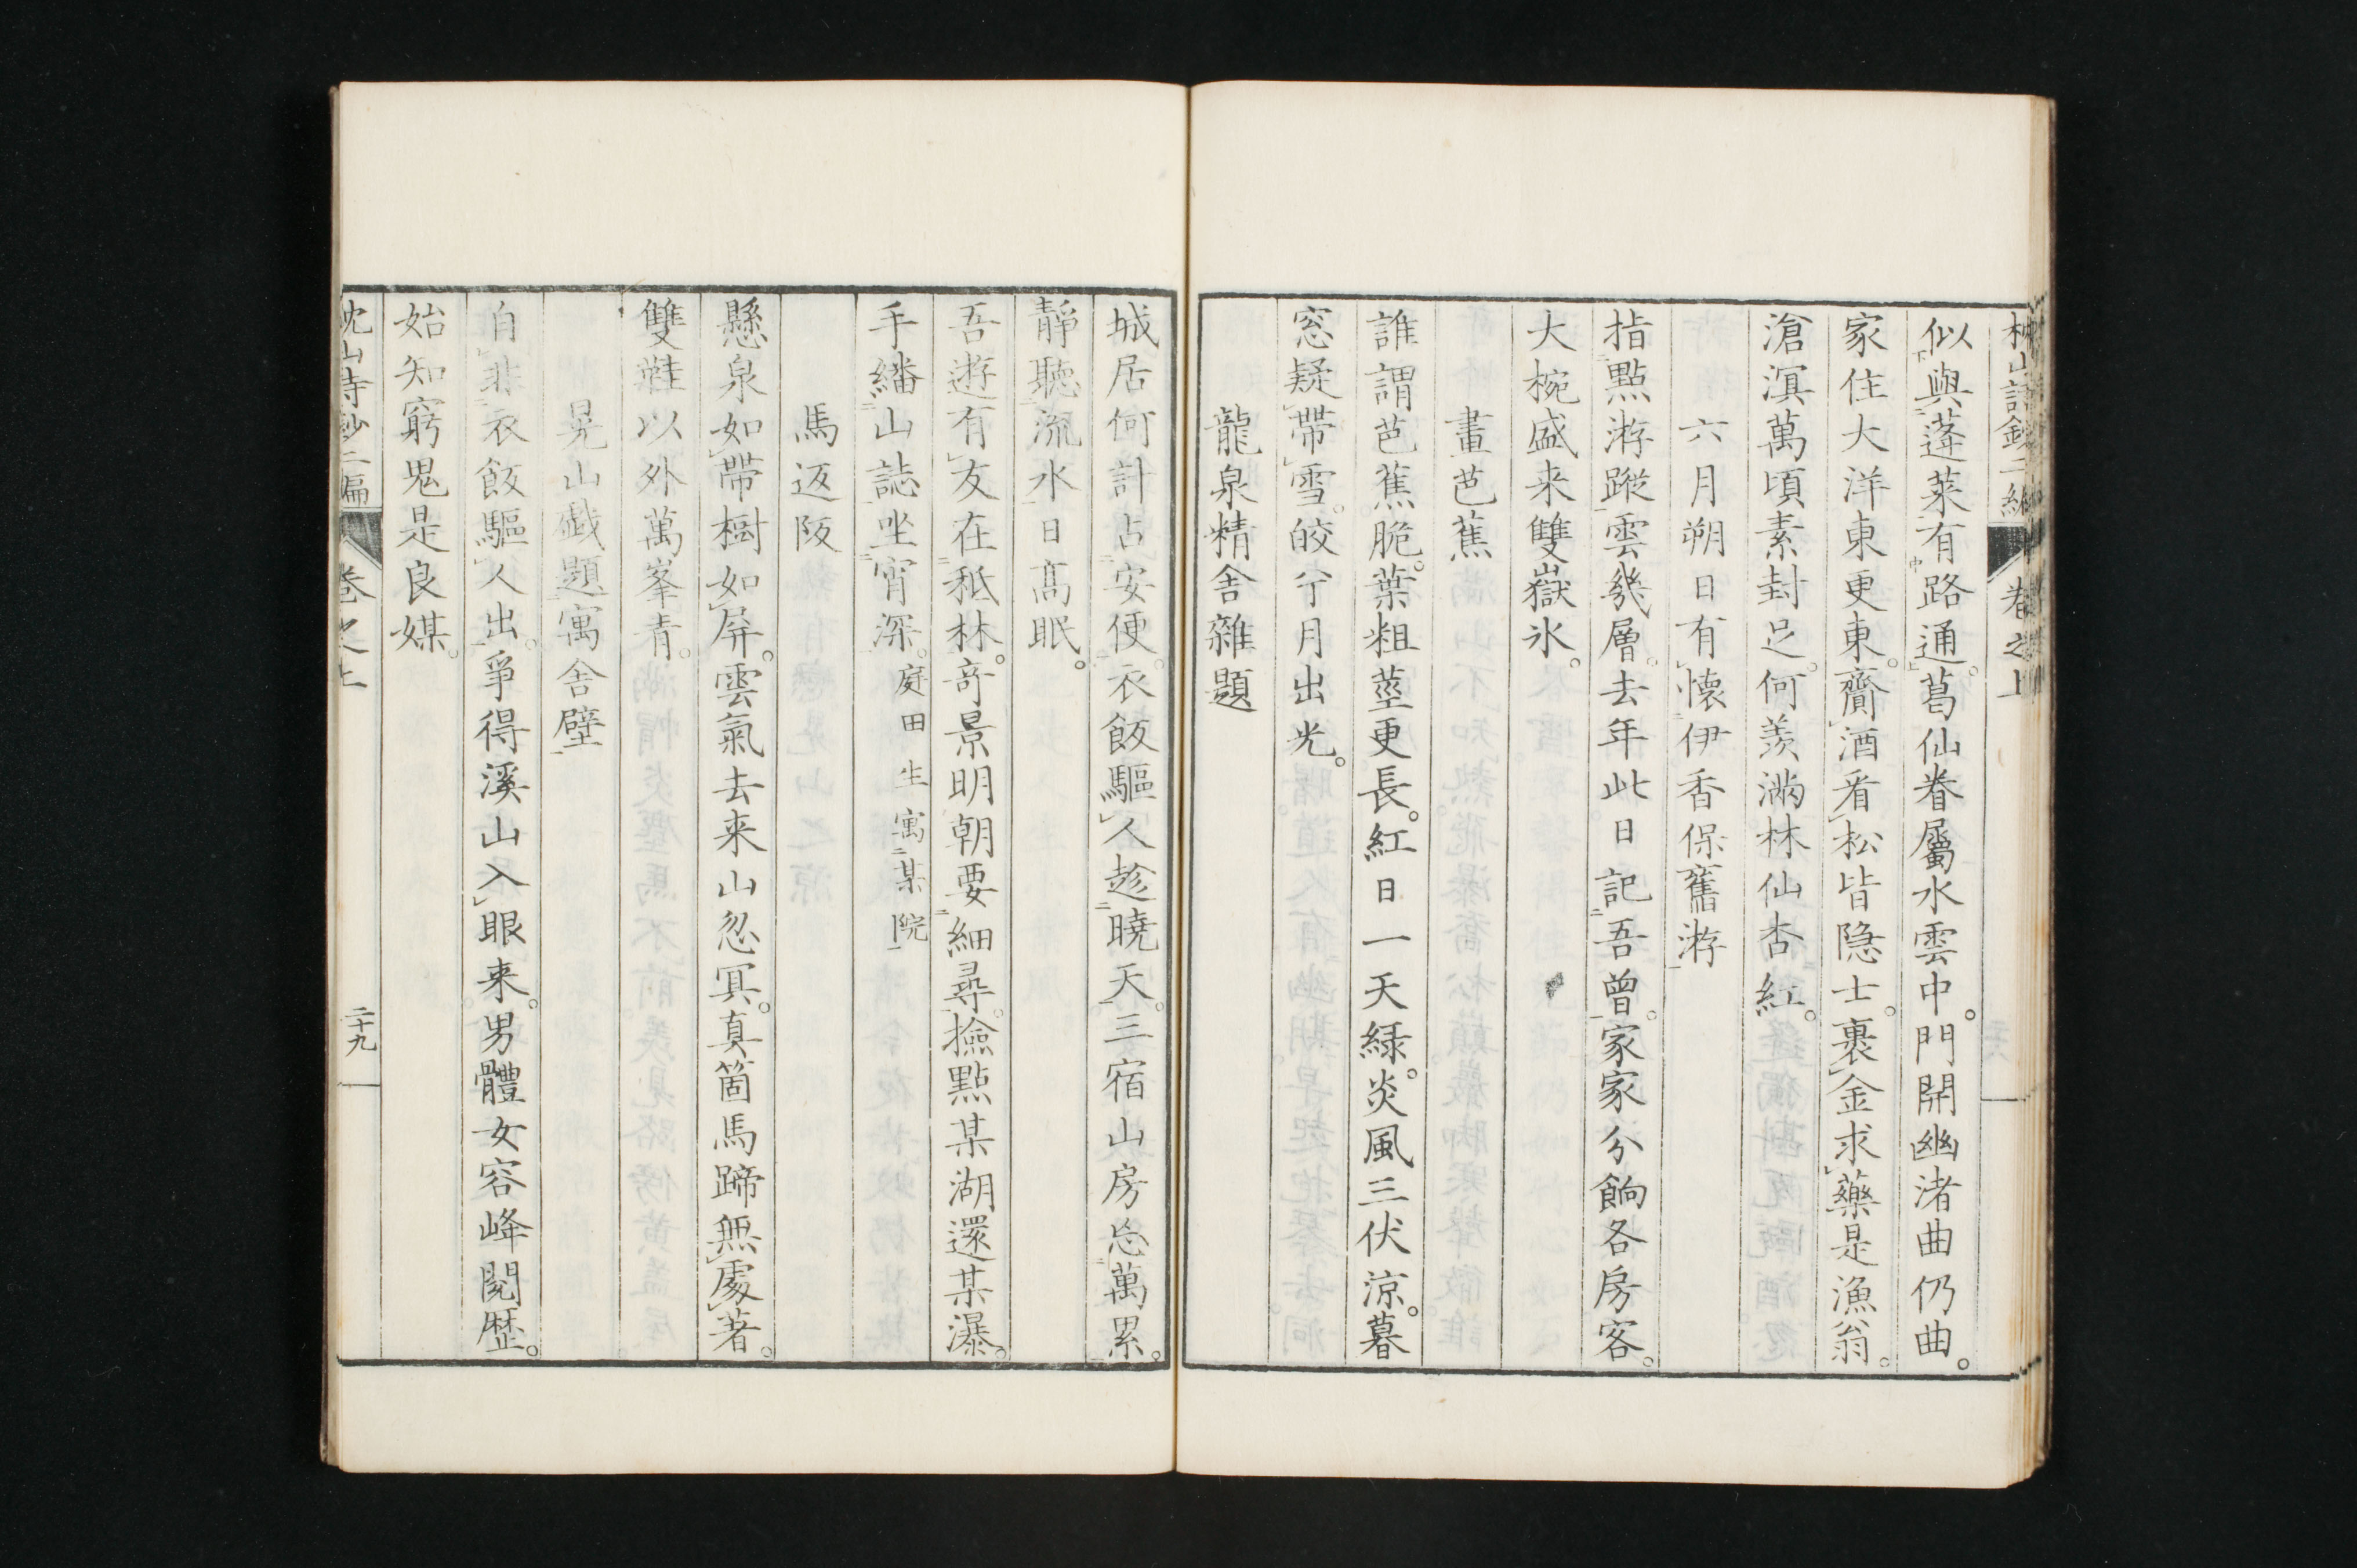 枕山詩鈔二編 卷之上
似與蓬萊有路通。葛仙眷屬水雲中。門開幽渚曲仍曲。
家住大洋東更東。齎酒看松皆隐士。裹金求藥是漁翁。
滄溟萬頃素封足。何羨滿林仙杏紅。
六月朔日有懐伊香保舊游
指點游蹤雲幾層。去年此日記吾曾。家家分餉各房客。
大椀盛来雙嶽氷。
畫芭蕉
誰謂芭蕉脆。葉粗莖更長。紅日一天緑。炎風三伏涼。暮
窓疑帶雪。皎兮月出光。
龍泉精舍雜題
城居何計占安便。衣飯驅人趁曉天。三宿山房忘萬累。
靜聽流水日髙眠。
吾遊有友在秪林。竒景明朝要細尋。撿點某湖還某瀑。
手繙山誌坐宵深。庭田生寓某院
馬返阪
懸泉如帶樹如屏。雲氣去来山忽冥。真箇馬蹄無處著。
雙鞋以外萬峯青。
晃山戲題寓舍壁
自非衣飯驅人出。爭得溪山入眼来。男體女容峰閱歷。
始知窮鬼是良媒。
枕山詩鈔二編 卷之上 二十九